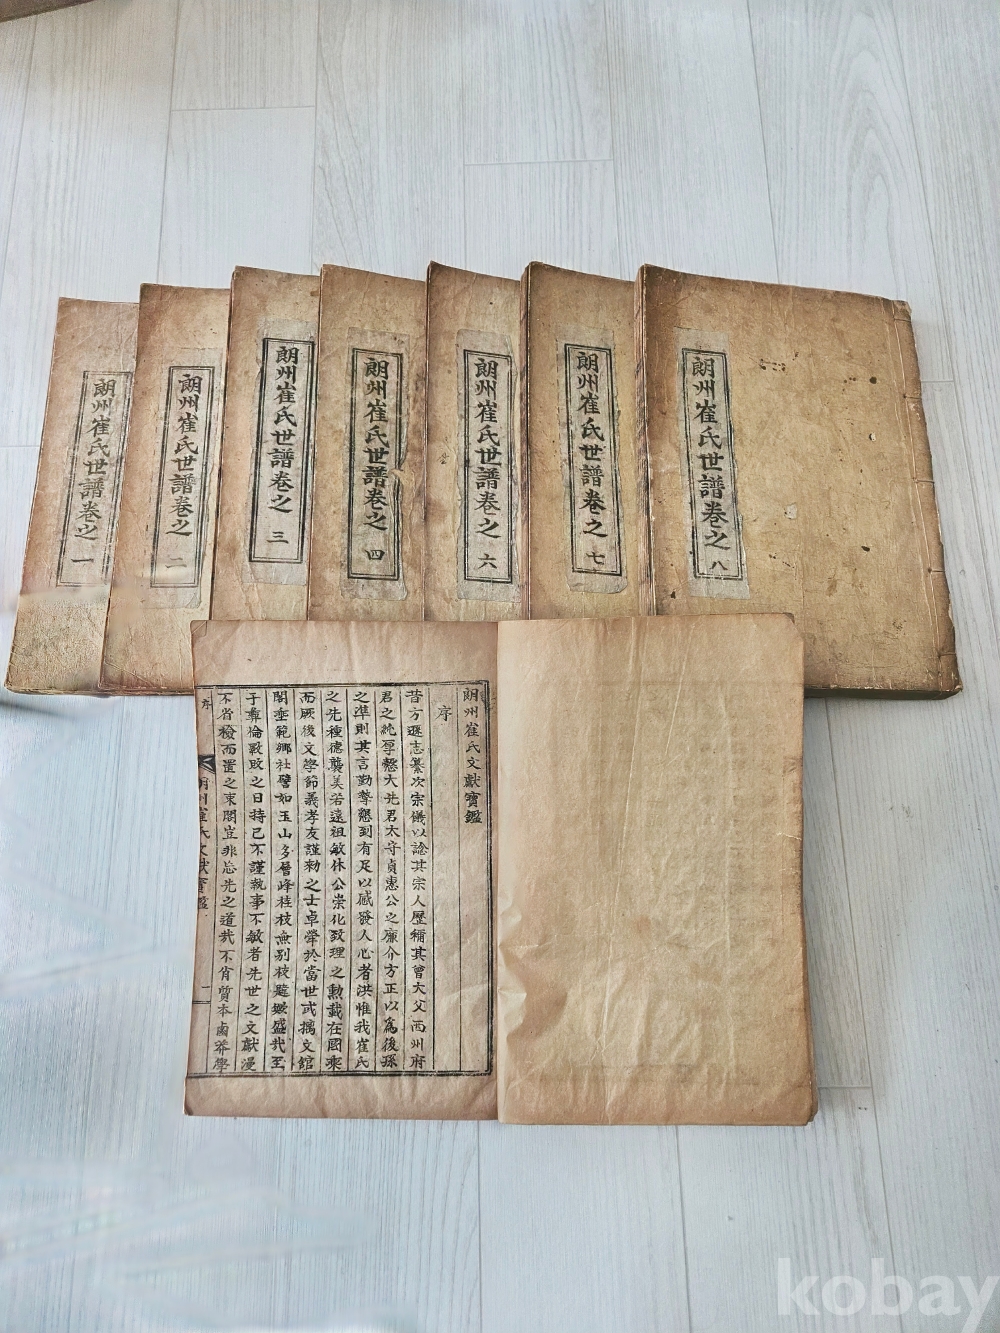 朗州崔氏世譜卷之 一
朗州崔氏世譜卷之 二
朗州崔氏世譜卷之 三
朗州崔氏世譜卷之 四
朗州崔氏世譜卷之 六
朗州崔氏世譜卷之 七
朗州崔氏世譜卷之 八
朗州崔氏文獻寶鑑
序
昔方遜志纂次宗儀以諗其宗人歷稱其曾大父西州府
君之純厚慤大先君太守貞惠公之廉介方正以爲後孫
之準則其言勤摯懇到有足以感發人心者洪惟我崔氏
之先種德襲美若遠祖敏休公崇化致理之勳載在國乘
而厥後文學節義孝友謹勑之士卓犖於當世或擒文館
閣垂範鄕社譬如玉山多層峰桂枝無別枝韙歟盛哉至
于彝倫斁敗之日持己不謹執事不敏者先世之文獻漫
不省檢而置之束閣豈非忘先之道哉不肖質本鹵莽學
序
朗州崔氏文獻寶鑑
一
kobay